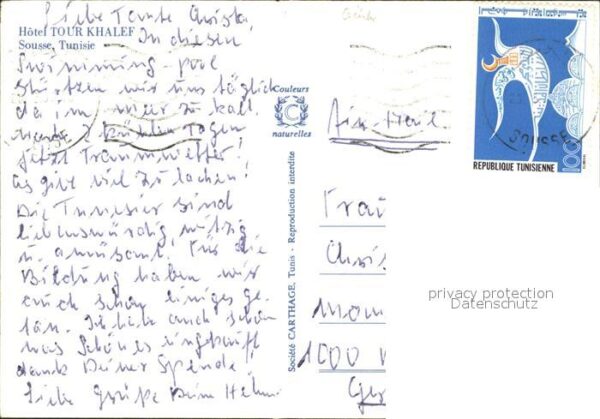 Hôtel TOUR KHALEF
Sousse, Tunisie
Liebe Tante Christa,
In diesen
Swimming-pool
stürzen wir uns täglich
da im Meer zu kalt.
Nach 2 kühlen Tagen
jetzt Traumwetter,
es give viel zu lachen!
Die Tunesier sind
liebenswürdig, witzig
u. amüsant. Für die
Bildung haben wir
auch schon einiges ge-
tan. Ich habe auch schon
was Schönes eingekauft
dank Deiner Spende!
Liebe Grüße Deine
Couleurs
C
naturelles
Société CARTHAGE, Tunis - Reproduction interdite
Air-Mail
SOUSSE
100
REPUBLIQUE TUNISIENNE
Frau
Chris
1000
Ger
privacy protection
Datenschutz